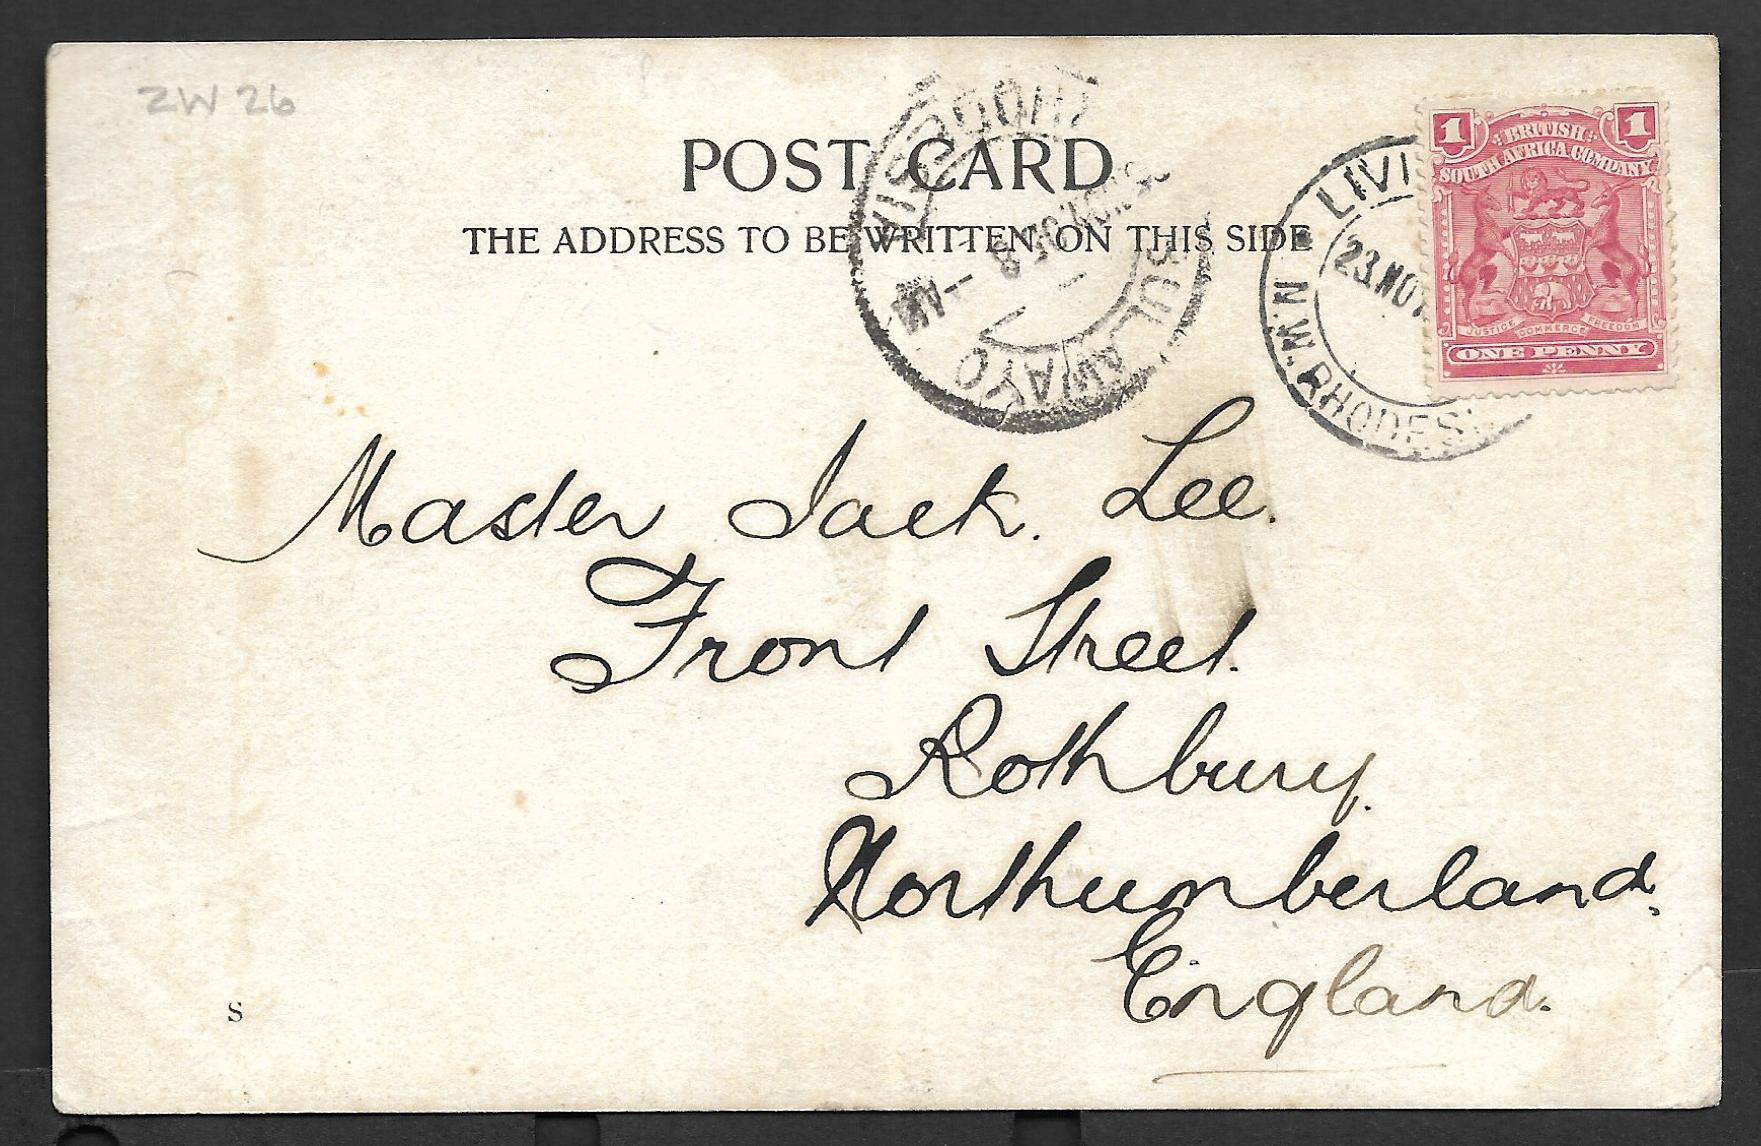 ZW 26
POST CARD
THE ADDRESS TO BE WRITTEN ON THIS SIDE
BULAWAYO
AM
LIVI
N.W. RHODES
23 NOV
1 1
BRITISH
SOUTH AFRICA COMPANY
JUSTICE COMMERCE FREEDOM
ONE PENNY
Master Jack. Lee.
Front Street.
Rothbury.
Northumberland.
England.
S